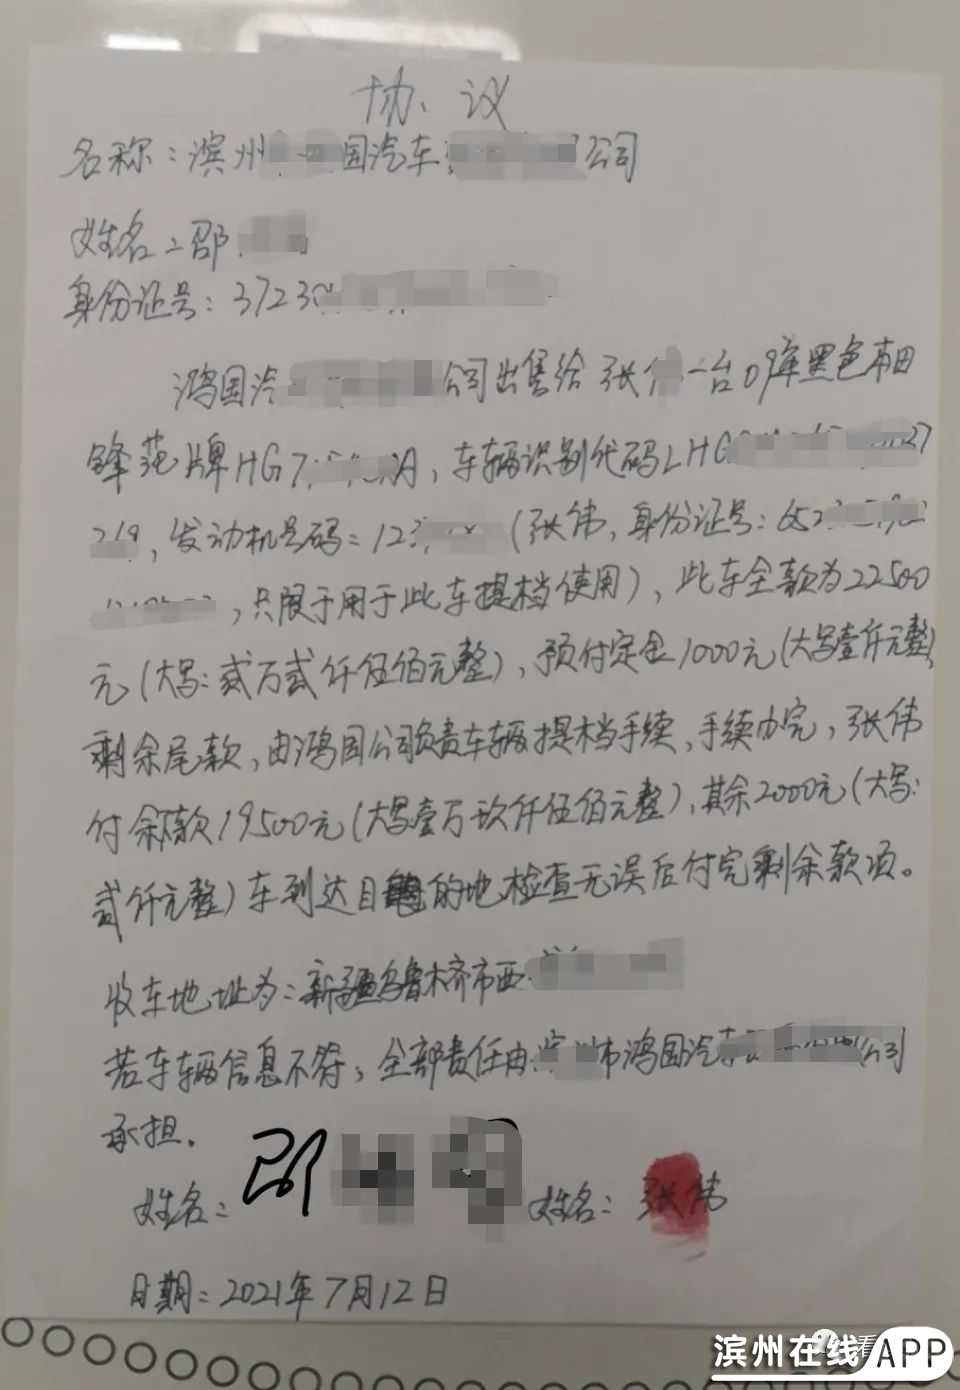 协议
名称：滨州 国汽车 公司
姓名：邵
身份证号：3723
鸿国汽 公司出售给张 一台09年黑色本田
锋范牌HG7 A，车辆识别代码LHG 27
219，发动机号码：123 （张伟，身份证号：652
，只限于用于此车提档使用），此车全款为22500
元（大写：贰万贰仟伍佰元整），预付定金1000元（大写壹仟元整），
剩余尾款，由鸿国公司负责车辆提档手续，手续办完，张伟
付余款19500元（大写壹万玖仟伍佰元整），其余2000元（大写：
贰仟元整）车到达目的地检查无误后付完剩余款项。
收车地址为：新疆乌鲁木齐市西
若车辆信息不符，全部责任由 市鸿国汽车 公司
承担。
姓名：邵 姓名：张伟
日期：2021年7月12日
滨州在线APP